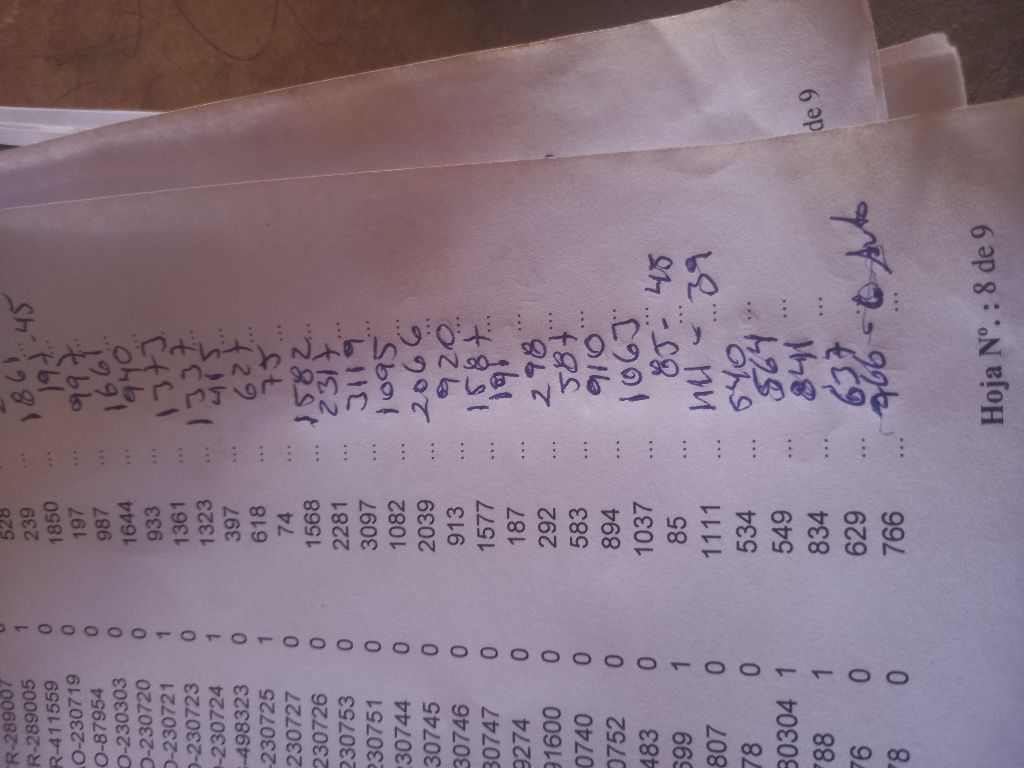 R-289007 0
R-289005 1 528
R-411559 0 239 ...
AO-230719 0 1850 ... 1861
O-87954 0 197 ... 197 - 45
O-230303 0 987 ... 997 ...
O-230720 0 1644 ... 1661 ...
O-230721 1 933 ... 940 ...
0-230723 0 1361 ... 1373 ...
-230724 1 1323 ... 1337 ...
-498323 0 397 ... 415 ...
-230725 1 618 ... 627 ...
230727 0 74 ... 75 ...
230726 0 1568 ... 1582 ...
230753 0 2281 ... 2317 ...
230751 0 3097 ... 3119 ...
30744 0 1082 ... 1095 ...
30745 0 2039 ... 2066 ...
30746 0 913 ... 920 ...
30747 0 1577 ... 1587 ...
9274 0 187 ... 191 ...
91600 0 292 ... 298 ...
0740 0 583 ... 587 ...
0752 0 894 ... 910 ...
483 0 1037 ... 1063 ...
699 1 85 ... 85 - 45
807 0 1111 ... 1111 - 39
78 0 534 ... 540 ...
80304 1 549 ... 564 ...
788 1 834 ... 841 ...
76 0 629 ... 637
78 0 766 ... 766 - 0
Hoja Nº. : 8 de 9
de 9